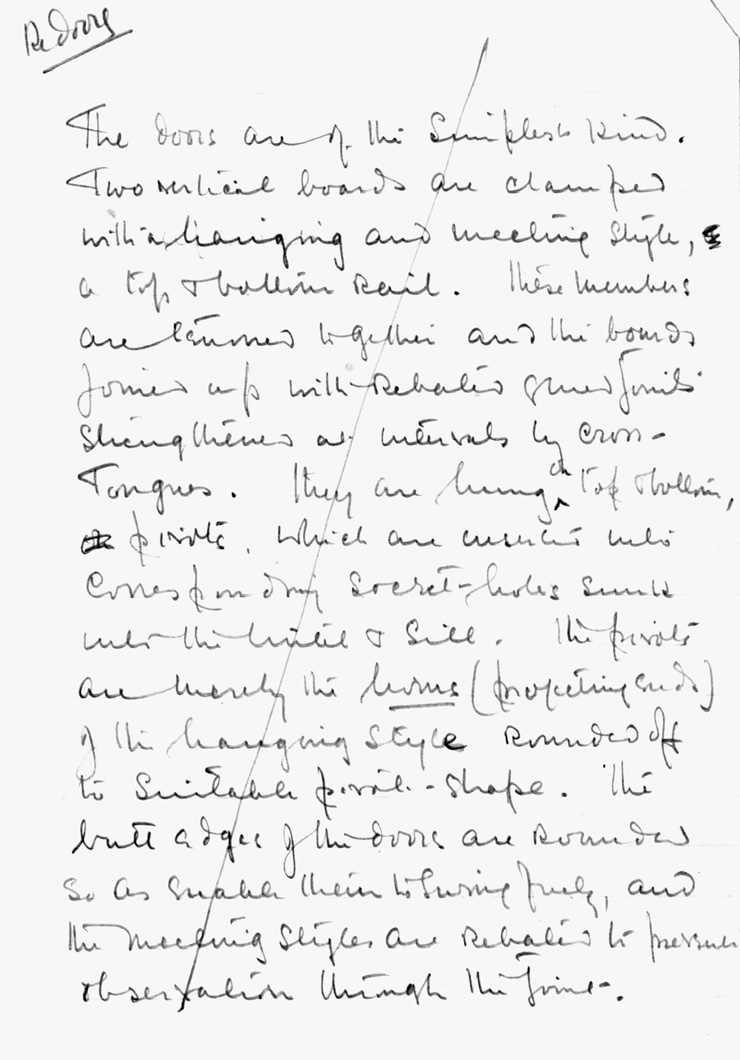 Re Doors
The doors are of the Simplest Kind.
Two vertical boards are clamped
with a hanging and meeting style,
a top & bottom rail. These members
are tenoned together and the boards
joined up with Rebated glued joints
strengthened at intervals by cross-
Tongues. They are hung on top & bottom,
pivots, which are inserted into
Corresponding Socket-holes sunk
into the lintel & Sill. The pivots
are merely the horns (projecting ends)
of the hanging style Rounded off
to Suitable pivot-shape. The
butt edges of the doors are Rounded
So as Enable them to Swing freely, and
the meeting styles are Rebated to prevent
observation through the joint.